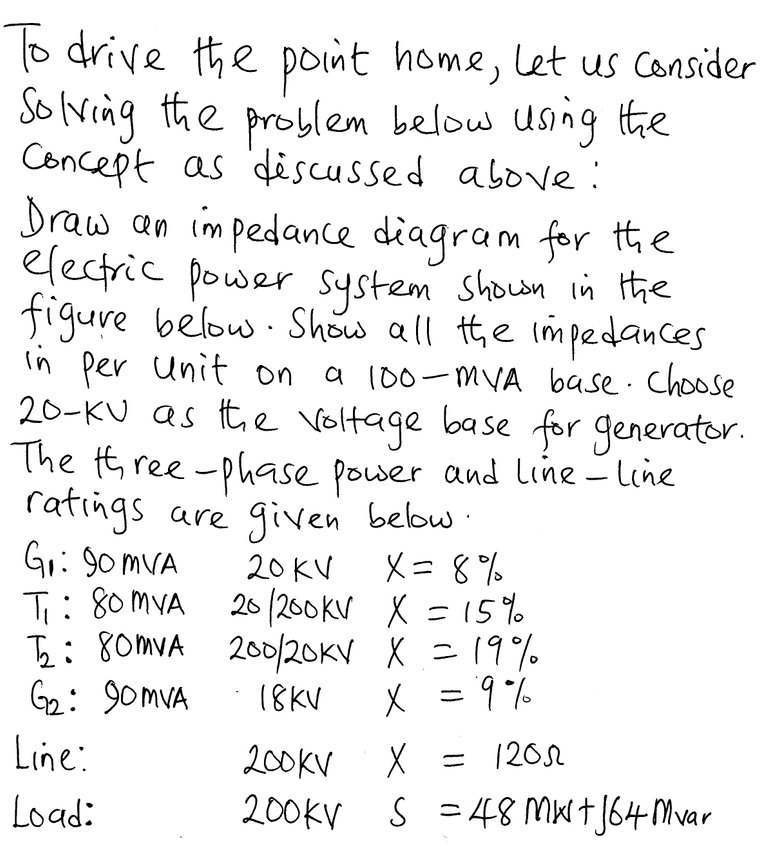 To drive the point home, let us consider
solving the problem below using the
concept as discussed above:
Draw an impedance diagram for the
electric power system shown in the
figure below. Show all the impedances
in per unit on a 100-MVA base. Choose
20-KV as the voltage base for generator.
The three-phase power and line-line
ratings are given below.
G1: 90MVA 20KV X = 8%
T1: 80MVA 20/200KV X = 15%
T2: 80MVA 200/20KV X = 19%
G2: 90MVA 18KV X = 9%
Line: 200KV X = 120Ω
Load: 200KV S = 48 MW+J64Mvar